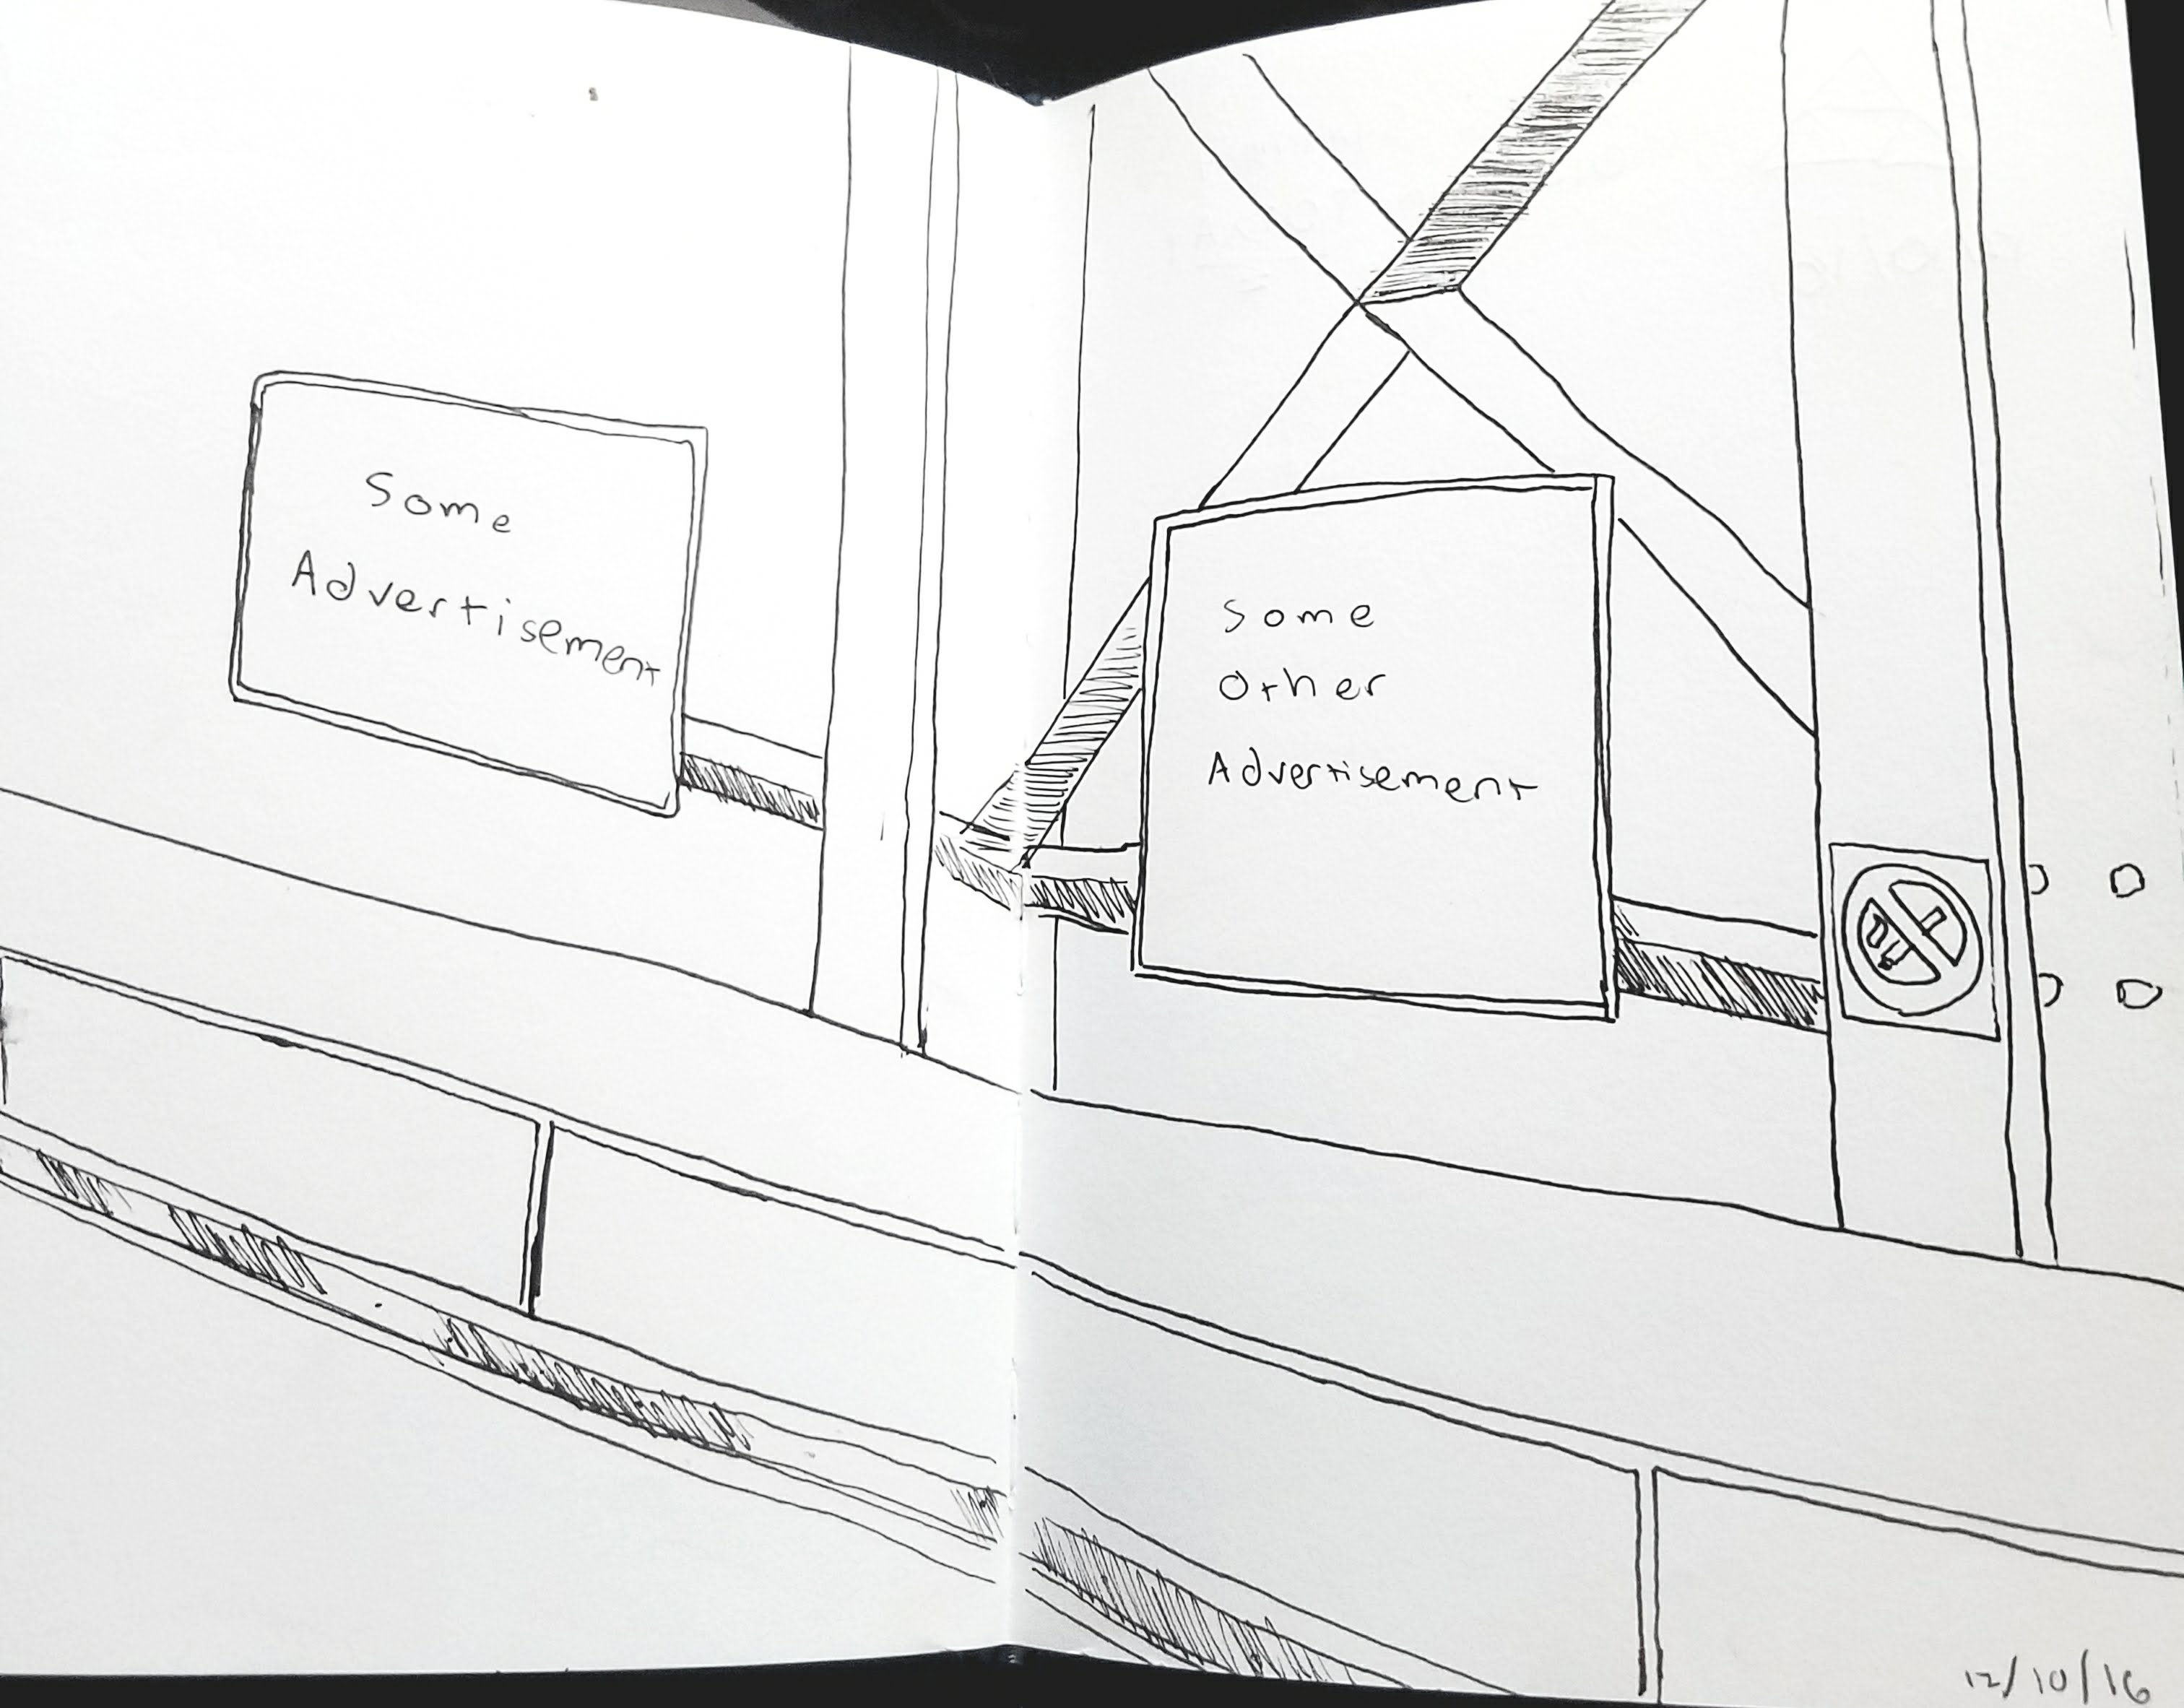 Some
Advertisement
Some
Other
Advertisement
12/10/16